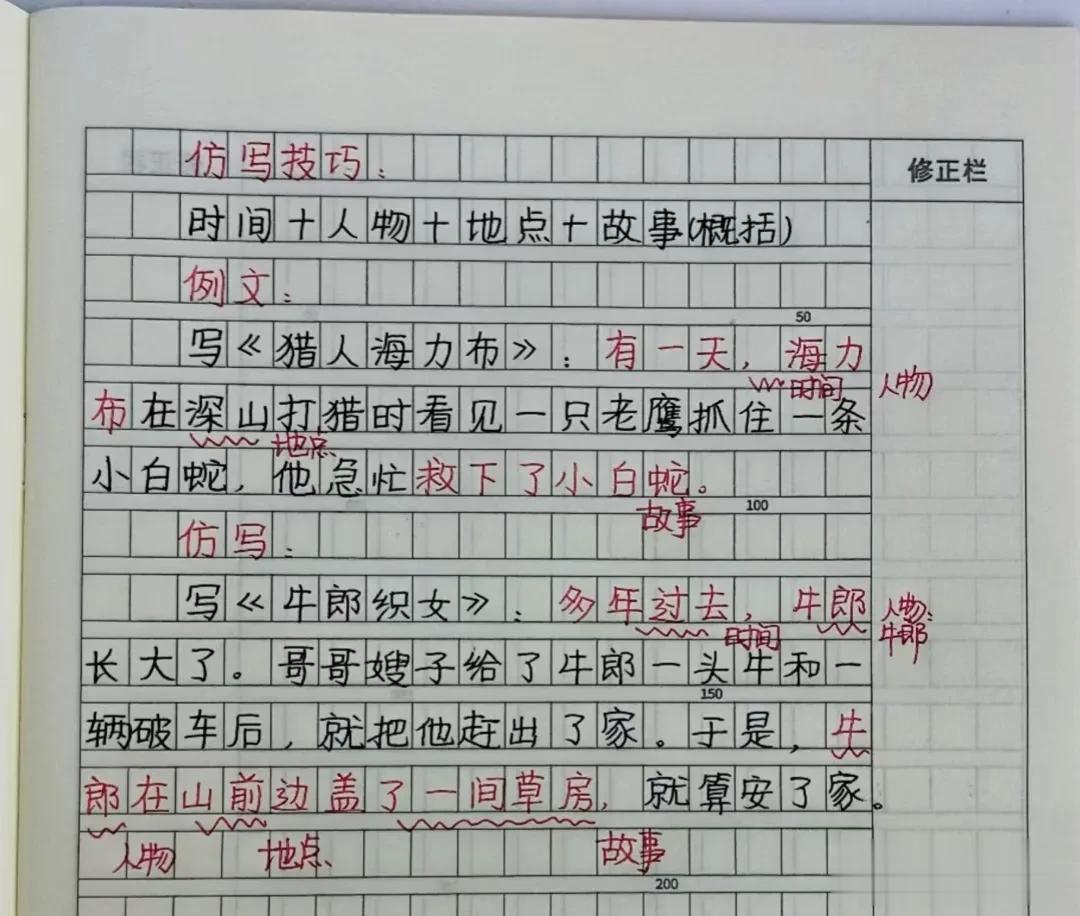 仿写技巧：
修正栏
时间+人物+地点+故事(概括)
例文：
50
写《猎人海力布》：有一天，海力
时间 人物
布在深山打猎时看见一只老鹰抓住一条
地点
小白蛇，他急忙救下了小白蛇。
故事
100
仿写：
写《牛郎织女》：多年过去，牛郎
时间
人物：
牛郎
长大了。哥哥嫂子给了牛郎一头牛和一
150
辆破车后，就把他赶出了家。于是，牛
郎在山前边盖了一间草房，就算安了家。
人物 地点 故事
200